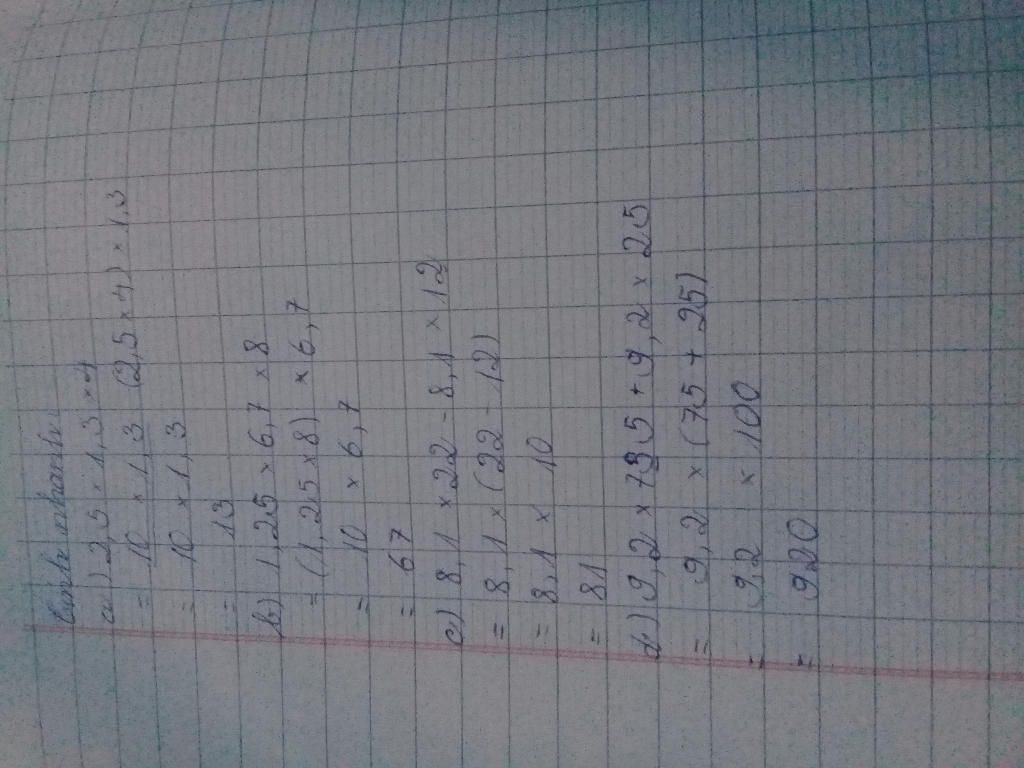 Tính nhanh:
a) 2,5 × 1,3 × 4
= 10 × 1,3 (2,5 × 4) × 1,3
= 10 × 1,3
= 13
b) 1,25 × 6,7 × 8
= (1,25 × 8) × 6,7
= 10 × 6,7
= 67
c) 8,1 × 22 - 8,1 × 12
= 8,1 × (22 - 12)
= 8,1 × 10
= 81
d) 9,2 × 75 + 9,2 × 25
= 9,2 × (75 + 25)
= 9,2 × 100
= 920